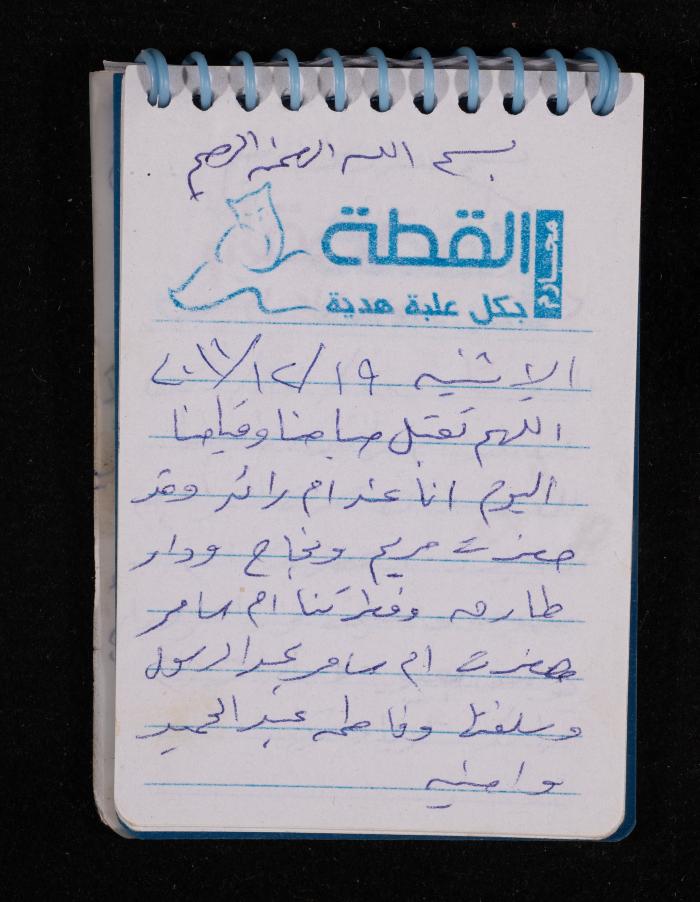 بسم الله الرحمن الرحيم
محارم
القطة
بكل علبة هدية
الاثنين ١٩/١٢/٢٠١١
اللهم تقبل صيامنا وقيامنا
اليوم انا عند ام رائد وقد
حضرت مريم ونجاح ودار
طارق وفطرتنا ام سامر
حضرت ام سامر عبد الرسول
وسلفتها وفاطمه عبد الحميد
وامنيه